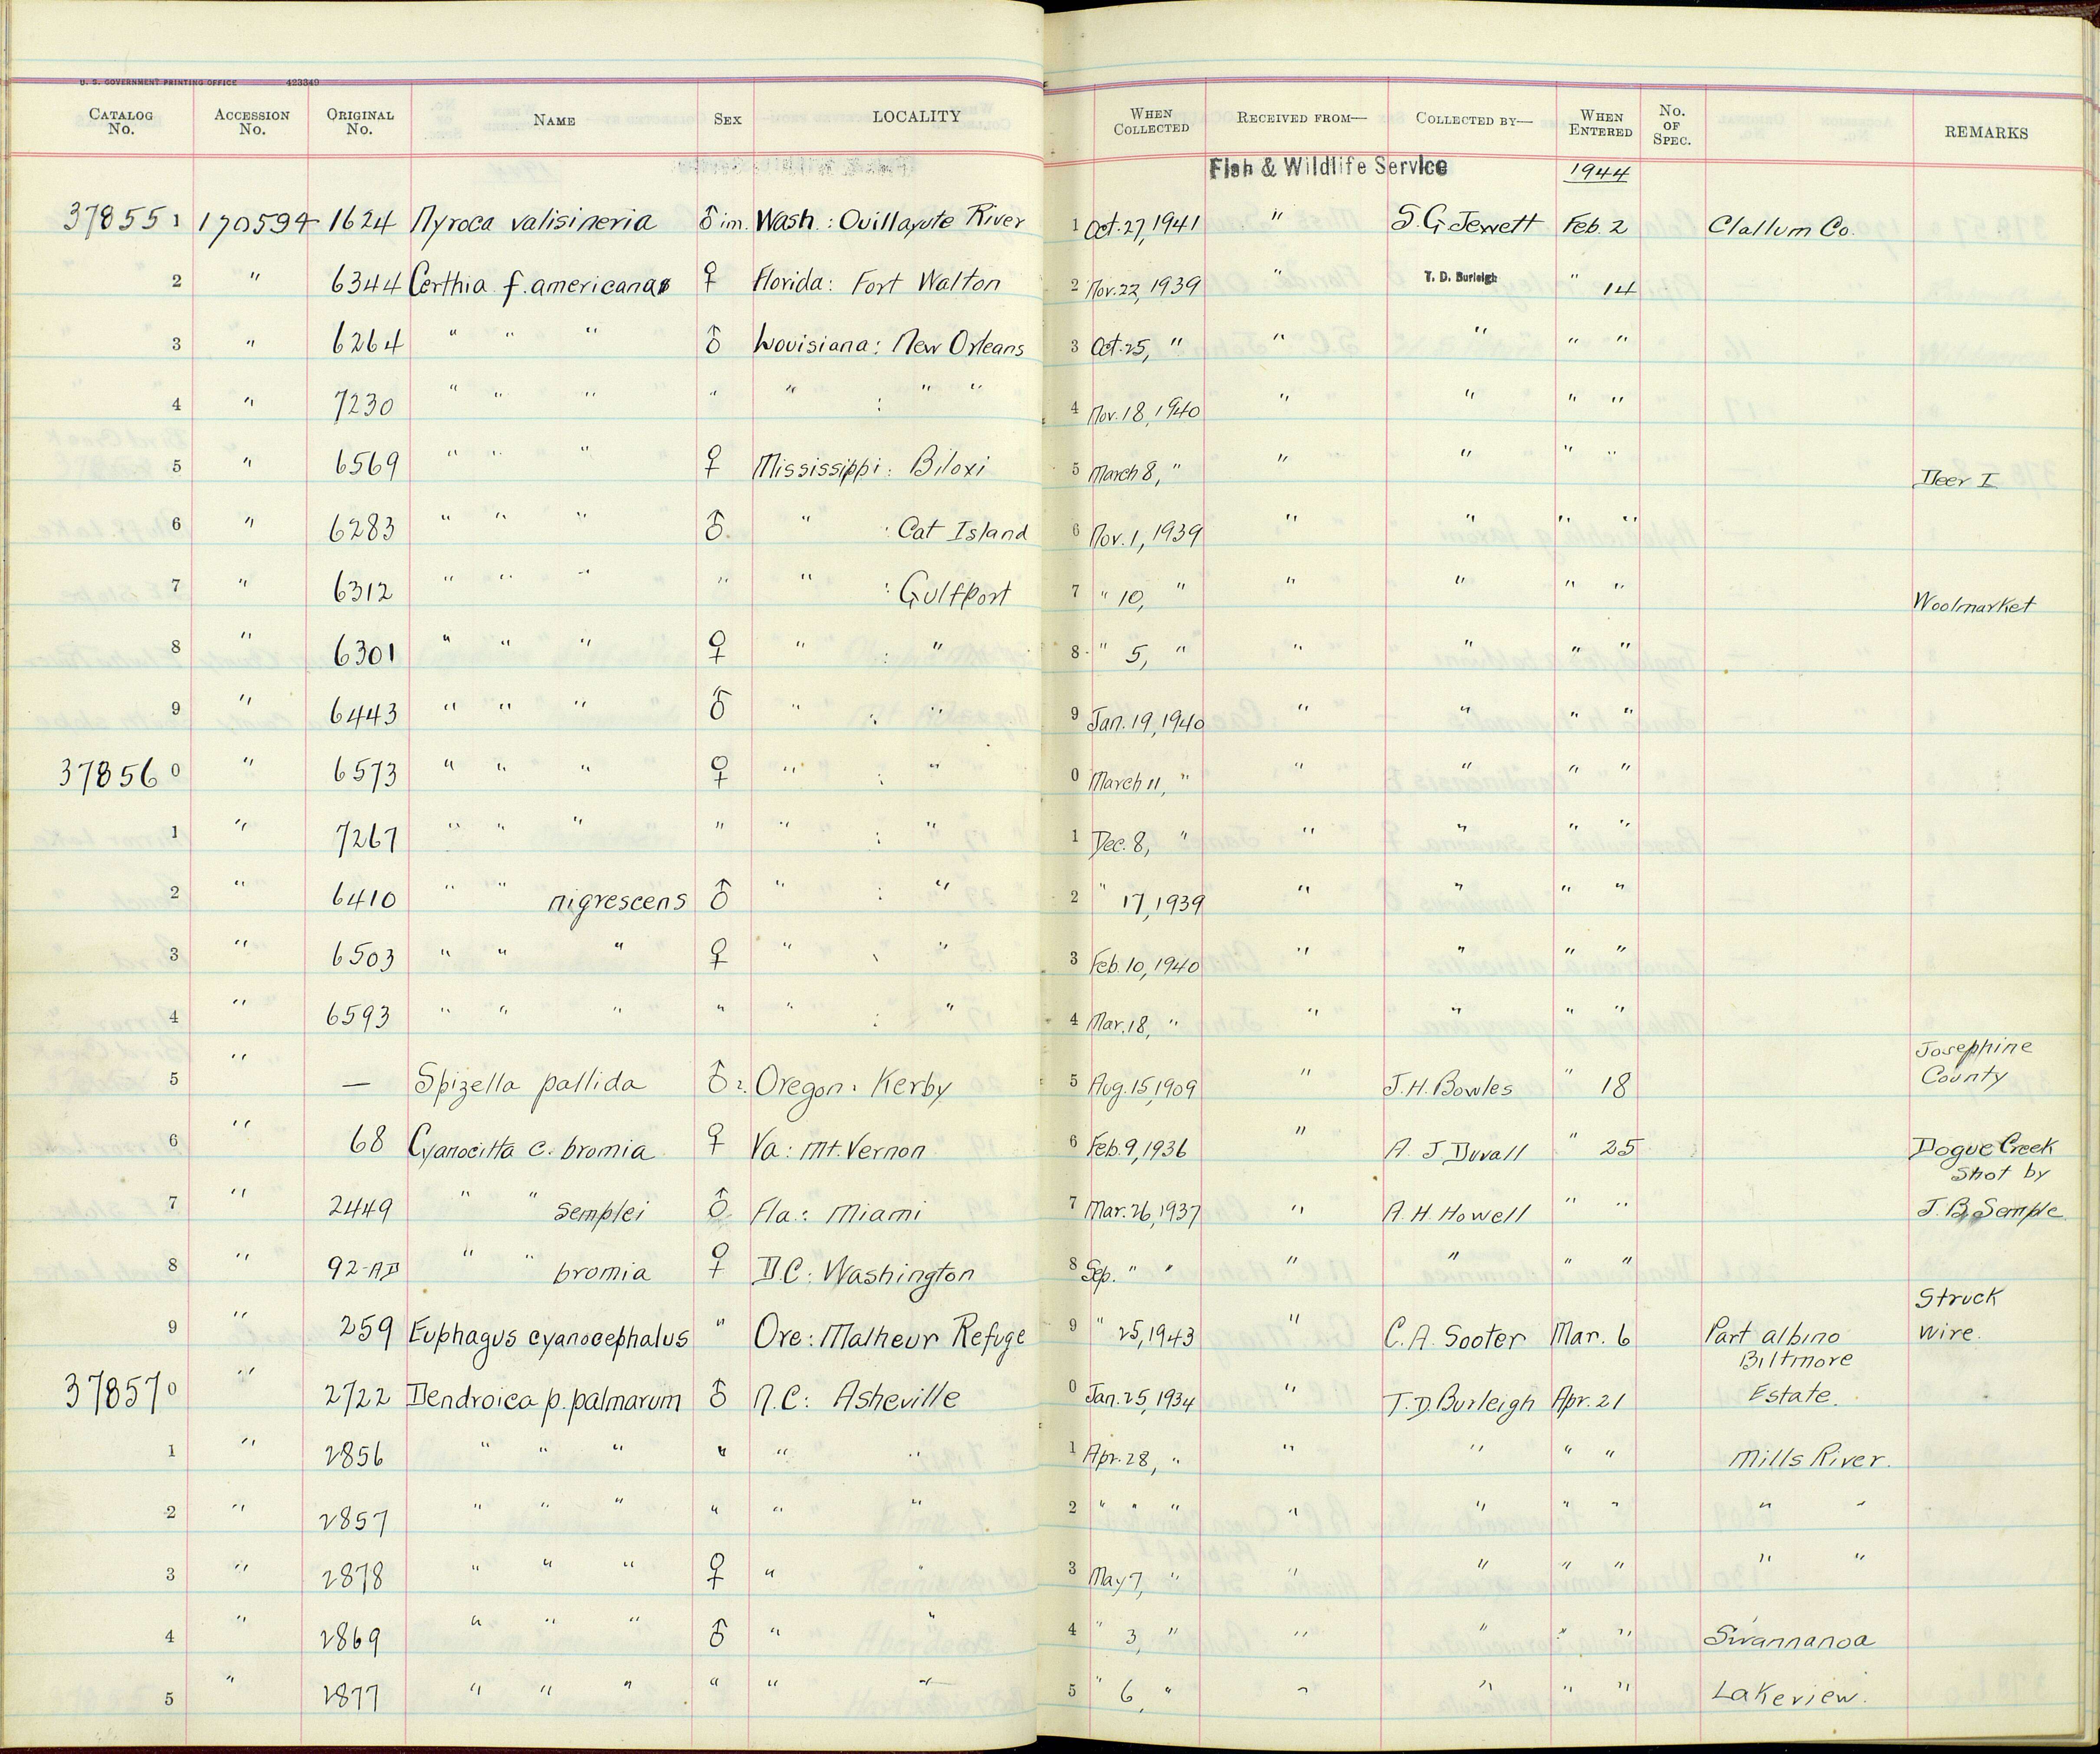 U. S. GOVERNMENT PRINTING OFFICE 423349
CATALOG No. ACCESSION No. ORIGINAL No. NAME SEX LOCALITY WHEN COLLECTED RECEIVED FROM— COLLECTED BY— WHEN ENTERED No. OF SPEC. REMARKS
Fish & Wildlife Service 1944
37855 1 170594 1624 Nyroca valisineria ♂ im. Wash.: Quillayute River 1 Oct. 27, 1941 " S. G. Jewett Feb. 2 Clallum Co.
2 " 6344 Certhia f. americana ♀ Florida: Fort Walton 2 Nov. 22, 1939 " T. D. Burleigh " 14
3 " 6264 " " " ♂ Louisiana: New Orleans 3 Oct. 25, " " " " "
4 " 7230 " " " " " : " " 4 Nov. 18, 1940 " " " "
5 " 6569 " " " ♀ Mississippi: Biloxi 5 March 8, " " " " " Deer I
6 " 6283 " " " ♂ " : Cat Island 6 Nov. 1, 1939 " " " "
7 " 6312 " " " " " : Gulfport 7 " 10, " " " " " Woolmarket
8 " 6301 " " " ♀ " : " 8 " 5, " " " " "
9 " 6443 " " " ♂ " : " 9 Jan. 19, 1940 " " " "
37856 0 " 6573 " " " ♀ " : " 0 March 11, " " " " "
1 " 7267 " " " " " : " 1 Dec. 8, " " " " "
2 " 6410 " " nigrescens ♂ " : " 2 " 17, 1939 " " " "
3 " 6503 " " " ♀ " : " 3 Feb. 10, 1940 " " " "
4 " 6593 " " " " " : " 4 Mar. 18, " " " " "
5 " — Spizella pallida ♂?. Oregon: Kerby 5 Aug. 15, 1909 " J. H. Bowles " 18 Josephine County
6 " 68 Cyanocitta c. bromia ♀ Va: Mt. Vernon 6 Feb. 9, 1936 " A. J Duvall " 25 Dogue Creek
7 " 2449 " " semplei ♂ Fla.: Miami 7 Mar. 26, 1937 " A. H. Howell " " Shot by J. B. Semple
8 " 92-AD " " bromia ♀ D.C: Washington 8 Sep. " " " " " "
9 " 259 Euphagus cyanocephalus " Ore: Malheur Refuge 9 " 25, 1943 " C. A. Sooter Mar. 6 Part albino Struck wire.
37857 0 " 2722 Dendroica p. palmarum ♂ N.C: Asheville 0 Jan. 25, 1934 " T. D. Burleigh Apr. 21 Biltmore Estate.
1 " 2856 " " " " " " 1 Apr. 28, " " " " " Mills River.
2 " 2857 " " " " " " 2 " " " " " " " " "
3 " 2878 " " " ♀ " " 3 May 7, " " " " " " "
4 " 2869 " " " ♂ " " 4 " 3, " " " " " Swannanoa
5 " 2877 " " " " " " 5 " 6, " " " " " Lakeview.